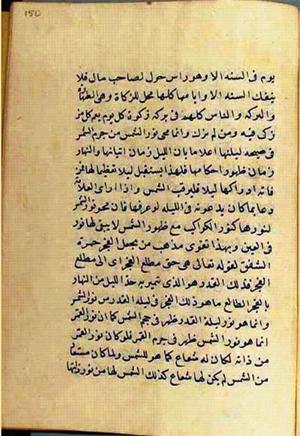 150
يوم فى السنه الا وهو راس حول لصاحب مال فلا
ينفك السنه الا وايامها كلها محل للزكاة وهى الطهارة
والبركه والناس كلهم فى بركه زكوة كل يوم يعم كل من
زكى فيه ومن لم يزك وانما محى نور الشمس من جرم الشمس
فى صبيحه ليلتها اعلاما بان الليل زمان اتيانها والنهار
زمان ظهور احكامها فلهذا يستقبل ليلا تعظيما لها فمن
فاته ادراكها ليلا فليرقب الشمس واذا راى العلامة
دعا بما كان يدعو به فى الليله لو عرفها فان محو نور الشمس
لنورها كنور الكواكب مع ظهور الشمس لا يبقى لها نور
فى العين وبهذا تقوى مذهب من يجعل الفجر حمرة
الشفق لقوله تعالى هى حتى مطلع الفجر اى الى مطلع
الفجر فذلك القدر هو الذى تميز به حد الليل من النهار
بالفجر الطالع ما هو ذلك الفجر فى ليلة القدر من نور الشمس
وانما هو نور ليلة القدر ظهر فى جرم الشمس كما ان نور القمر
انما هو نور الشمس ظهر فى جرم القمر فلو كان نور القمر
من ذاته لكان له شعاع كما هو للشمس ولما كان مستعارا
من الشمس لم يكن لها شعاع كذلك الشمس لها من نور ذاتها